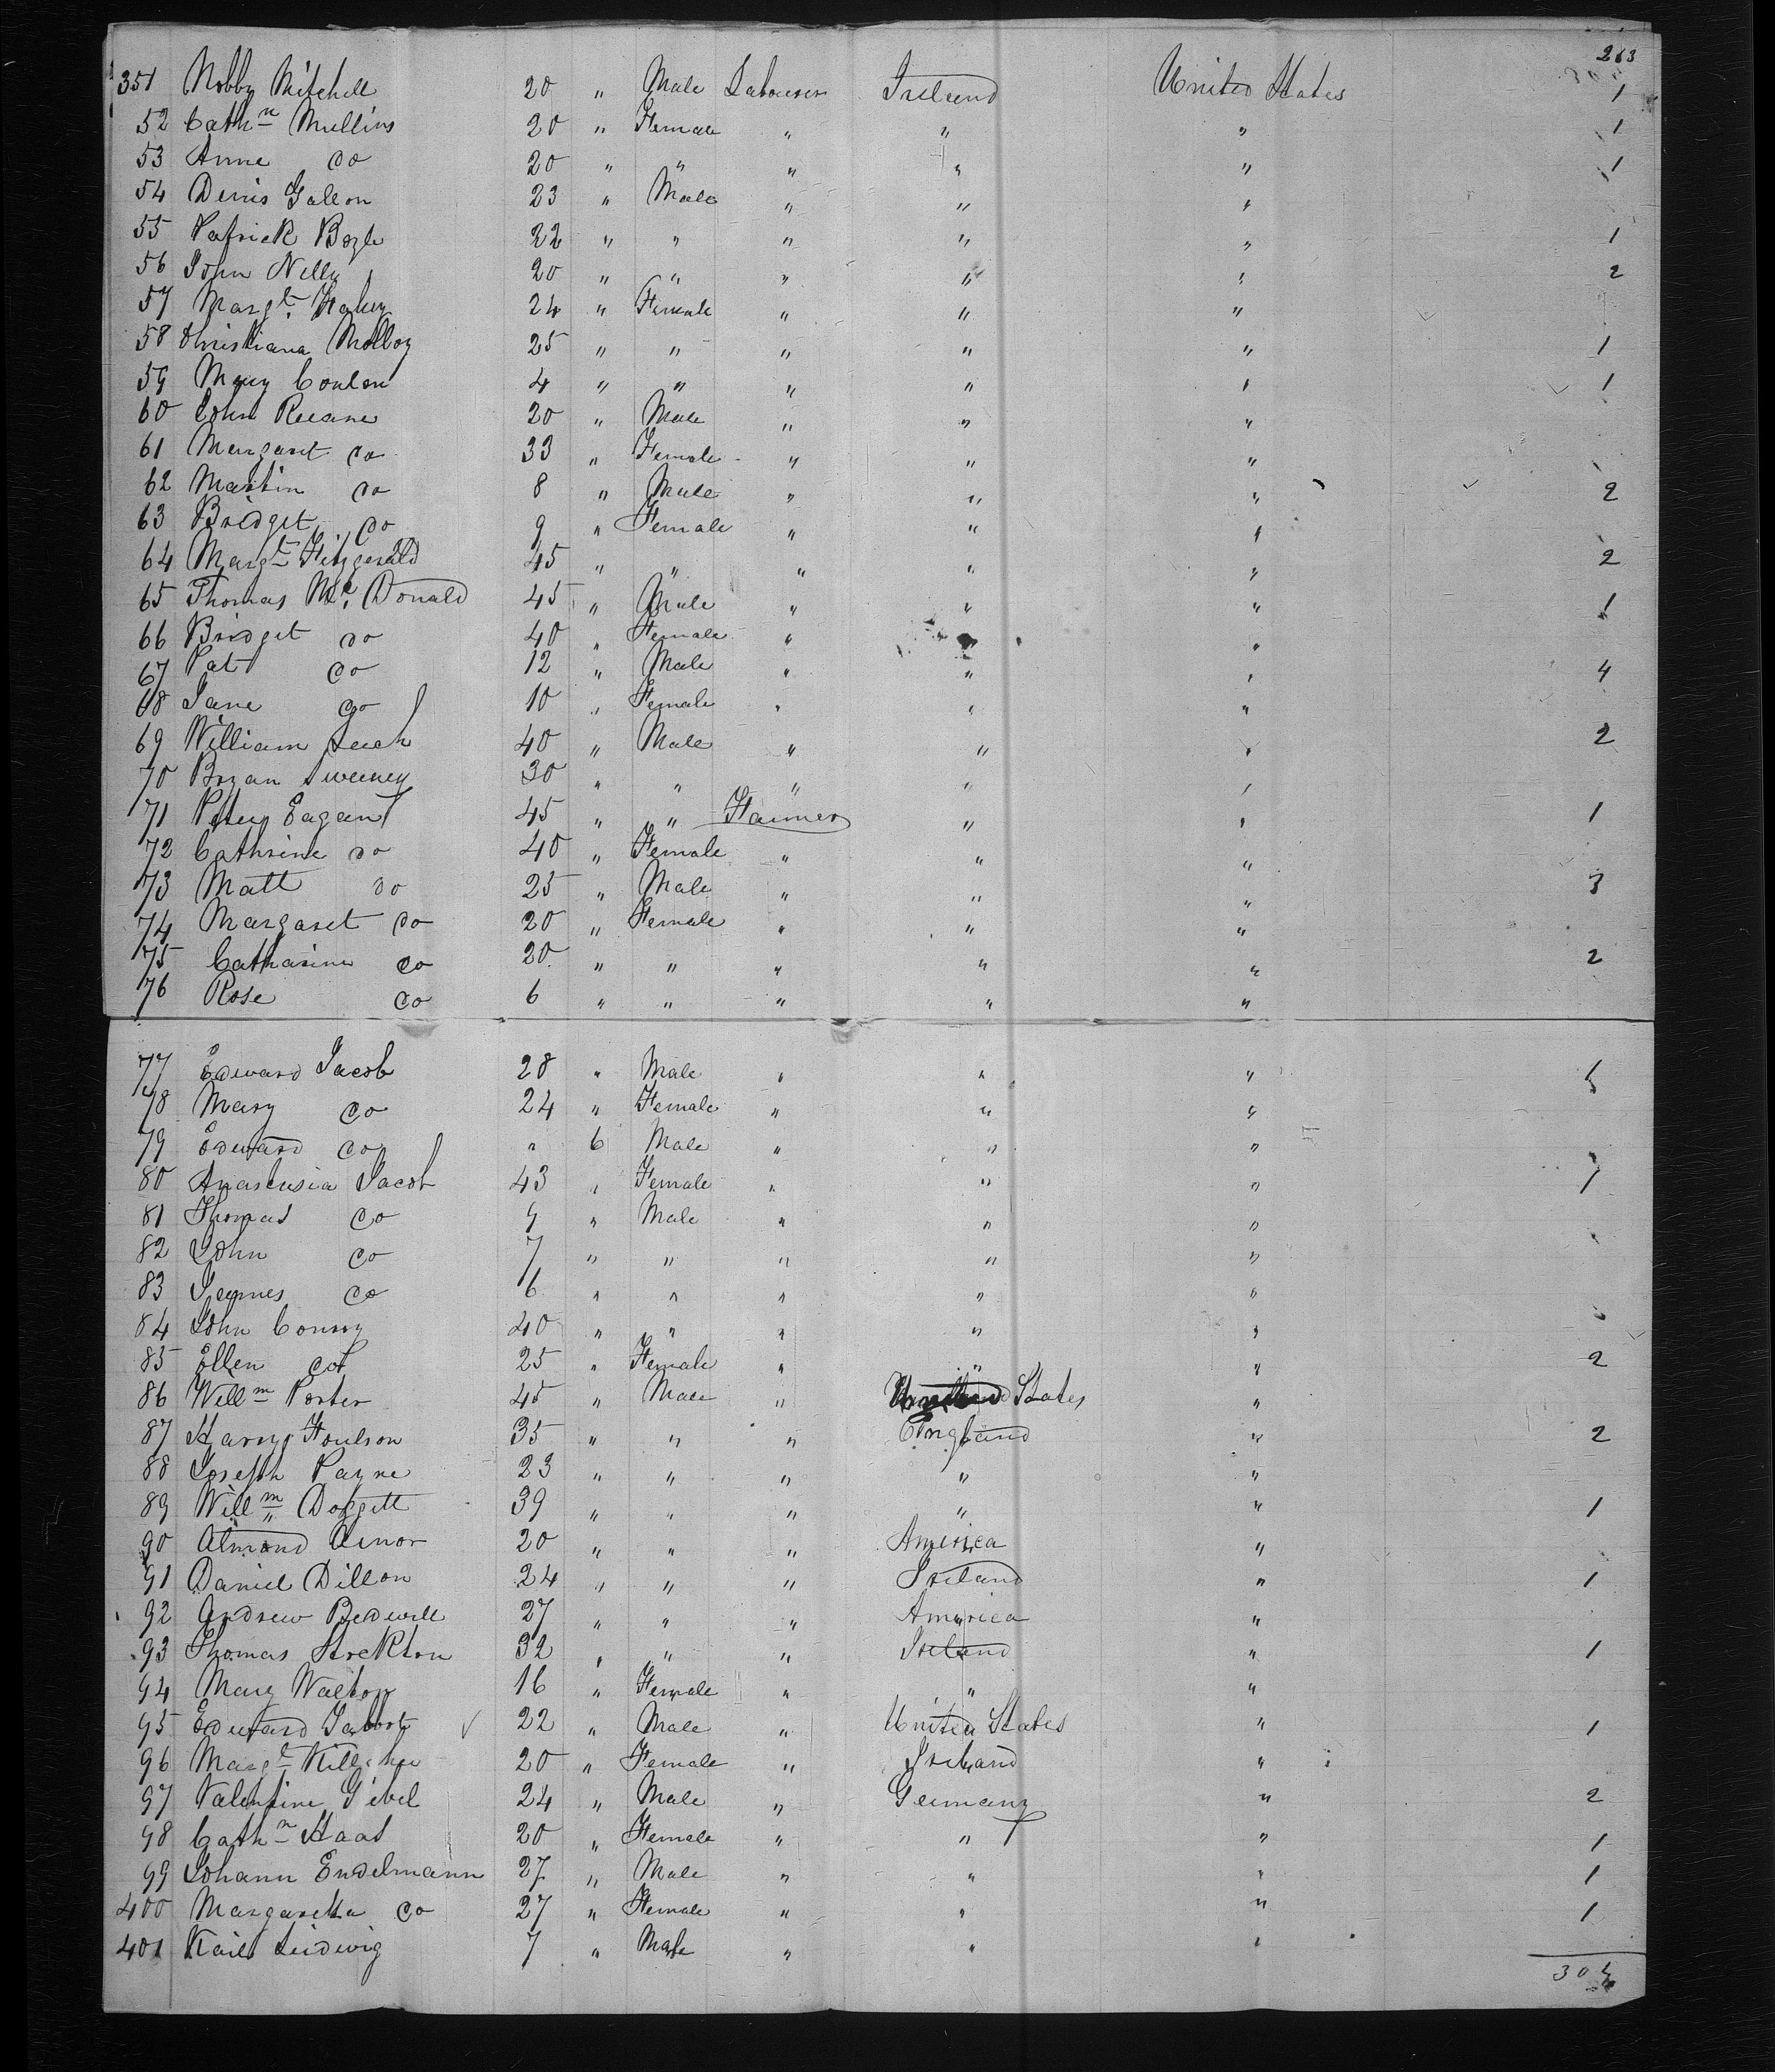 263
351 Nobby Mitchell 20 " Male Labourer Ireland United States 1
52 Cathn Mullins 20 " Female " " " 1
53 Anne do 20 " " " " " 1
54 Denis Gallon 23 " Male " " "
55 Patrick Bogle 22 " " " " " 1
56 John Nelly 20 " " " " " 2
57 Margt. 24 " Female " " "
58 Christiana Molloy 25 " " " " " 1
59 Mary Conlon 4 " " " " " 1
60 John Reeane 20 " Male " " "
61 Margaret do 33 " Female " " "
62 Martin do 8 " Male " " " 2
63 Bridget do 9 " Female " " "
64 Margt Fitzgerald 45 " " " " " 2
65 Thomas Mc. Donald 45 " Male " " " 1
66 Bridget do 40 " Female " " "
67 Pat do 12 " Male " " " 4
68 Jane do 10 " Female " " "
69 William Leech 40 " Male " " " 2
70 Bryan Sweeney 30 " " " " "
71 Peter Eagan 45 " " Farmer " " 1
72 Cathrine do 40 " Female " " "
73 Matt do 25 " Male " " " 3
74 Margaret do 20 " Female " " "
75 Catharine do 20 " " " " " 2
76 Rose do 6 " " " " "
77 Edward Jacob 28 " Male " " "
78 Mary do 24 " Female " " "
79 Edward do " 6 Male " " "
80 Anastasia Jacob 43 " Female " " " 1
81 Thomas do 9 " Male " " "
82 John do 7 " " " " "
83 James do 6 " " " " "
84 John Conroy 40 " " " " "
85 Ellen do 25 " Female " " " 2
86 Willm Porter 45 " Male " United States "
87 Harry Foulson 35 " " " England " 2
88 Joseph Payne 23 " " " " "
89 Willm Doggett 39 " " " " " 1
90 Almond Ainor 20 " " " America "
91 Daniel Dillon 24 " " " Ireland " 1
92 Andrew Bedwell 27 " " " America "
93 Thomas Stockton 32 " " " Ireland " 1
94 Mary Walton 16 " Female " " "
95 Edward Jabort 22 " Male " United States " 1
96 Margt Killeher 20 " Female " Ireland "
97 Valentine Gibel 24 " Male " Germany " 2
98 Cathn Haas 20 " Female " " " 1
99 Johann Endelmann 27 " Male " " " 1
400 Margaretta do 27 " Female " " " 1
401 Karl Ludwig 7 " Male " " "
304